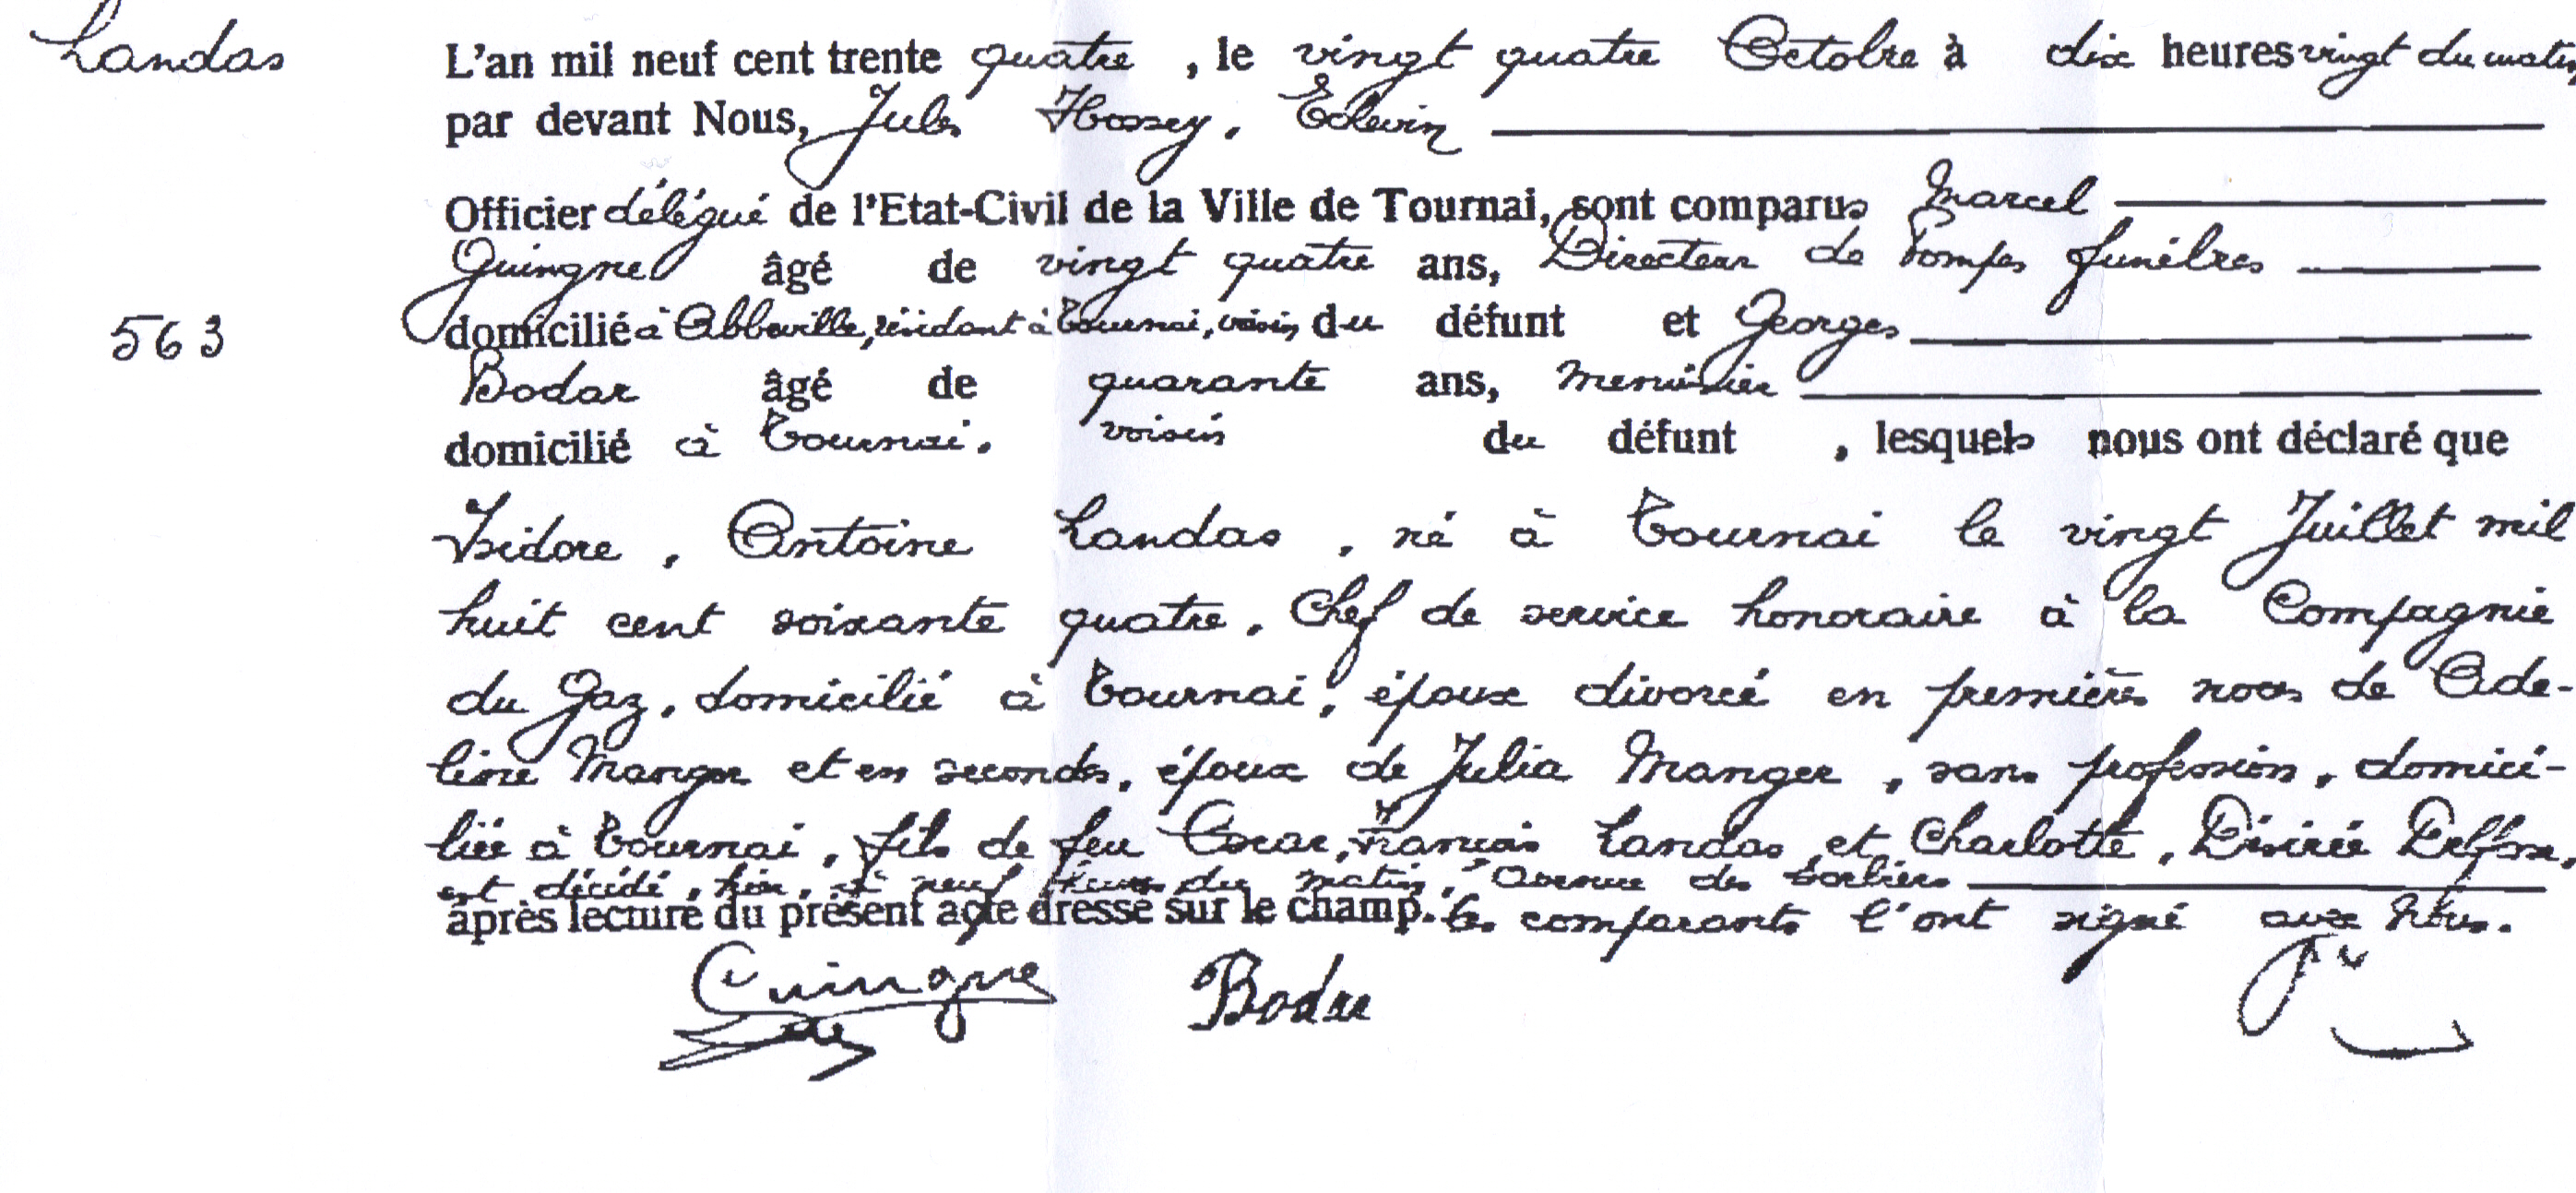 Landas
L'an mil neuf cent trente quatre, le vingt quatre Octobre à dix heures vingt du matin
par devant Nous, Jules Hossey, Edwin
Officier délégué de l'Etat-Civil de la Ville de Tournai, sont comparus Marcel
Quingne âgé de vingt quatre ans, Directeur de Pompes funèbres
563
domicilié à Abbeville, résidant à Tournai, voisin du défunt et Georges
Bodar âgé de quarante ans, menuisier
domicilié à Tournai, voisin du défunt, lesquels nous ont déclaré que
Isidore, Antoine Landas, né à Tournai le vingt Juillet mil
huit cent soixante quatre, Chef de service honoraire à la Compagnie
du Gaz, domicilié à Tournai, époux divorcé en premières noces de Ade-
line Manger et en secondes, époux de Julia Manger, sans profession, domici-
liée à Tournai, fils de feu Oscar, François Landas et Charlotte, Désirée
est décédé, hier, à neuf heures du matin, Avenue des Sorbiers
après lecture du présent acte dressé sur le champ. les comparants l'ont signé avec Nous.
Quingne Bodar